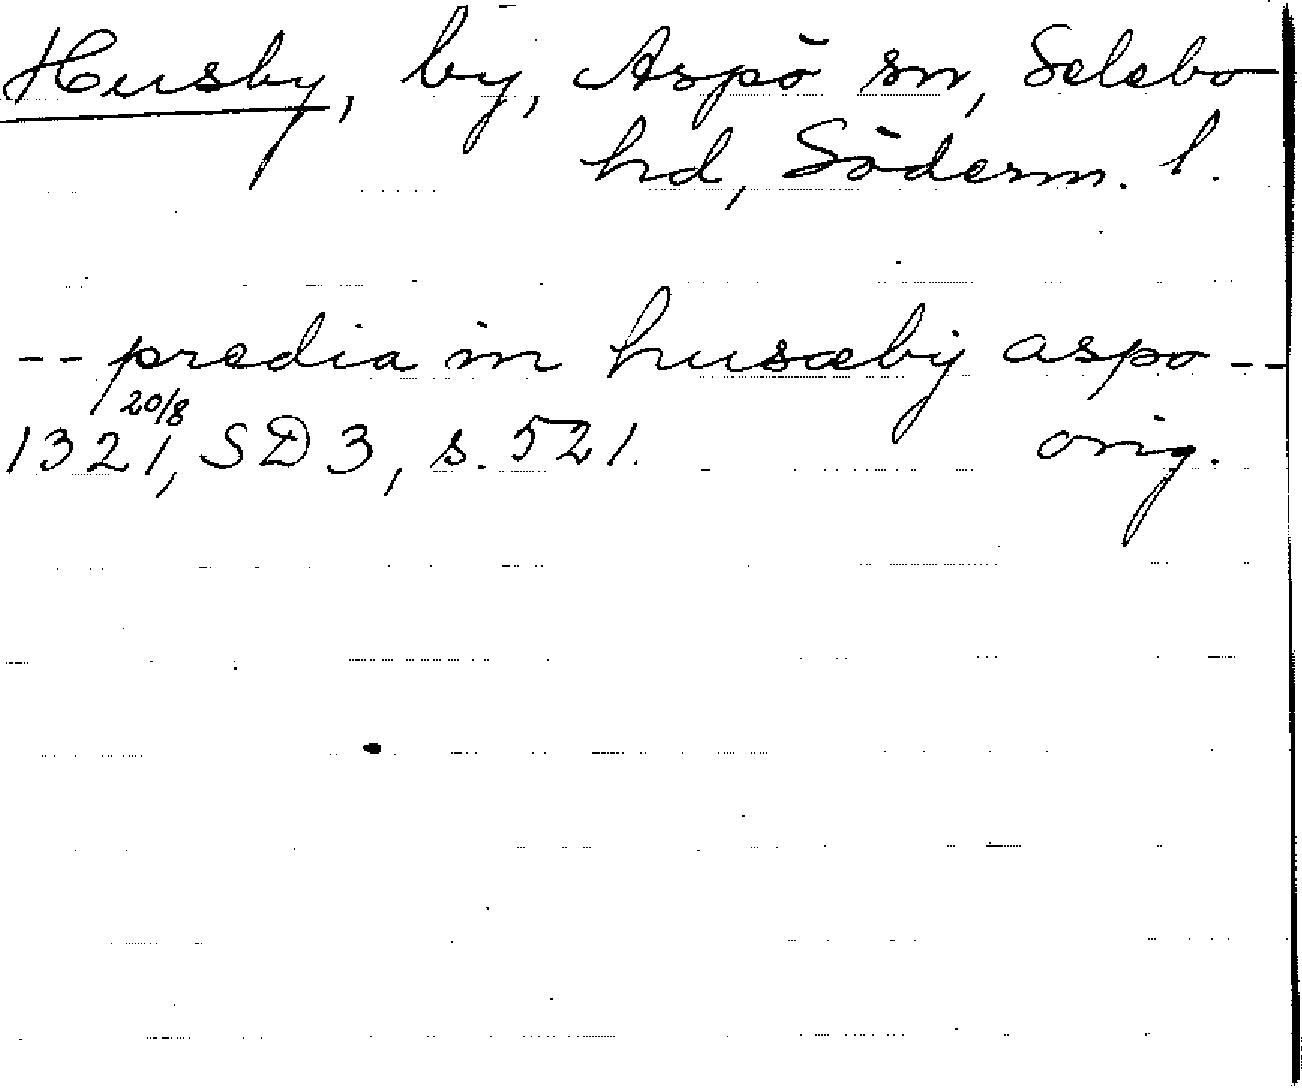 Husby, by, Aspö sn, Selebo
hd, Söderm. l.
-- predia in husæby aspo --
1321 20/8, SD 3, s. 521. orig.